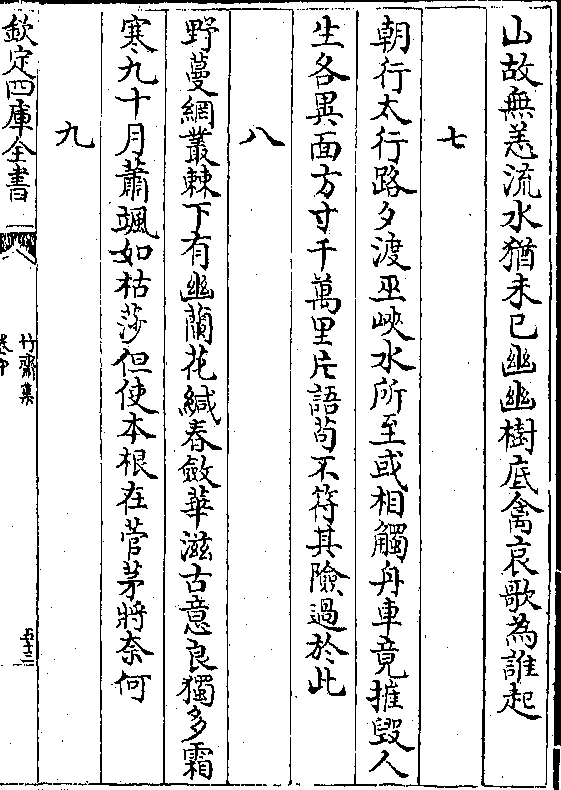 山故無恙流水猶未已幽幽樹底禽哀歌為誰起
七
朝行太行路夕渡巫峽水所至或相觸舟車竟摧毁人
生各異面方寸千萬里片語苟不符其險過於此
八
野蔓網叢棘下有幽蘭花緘春斂華滋古意良獨多霜
寒九十月蕭颯如枯莎但使本根在菅茅將奈何
九
欽定四庫全書
竹齋集
卷中
五十三